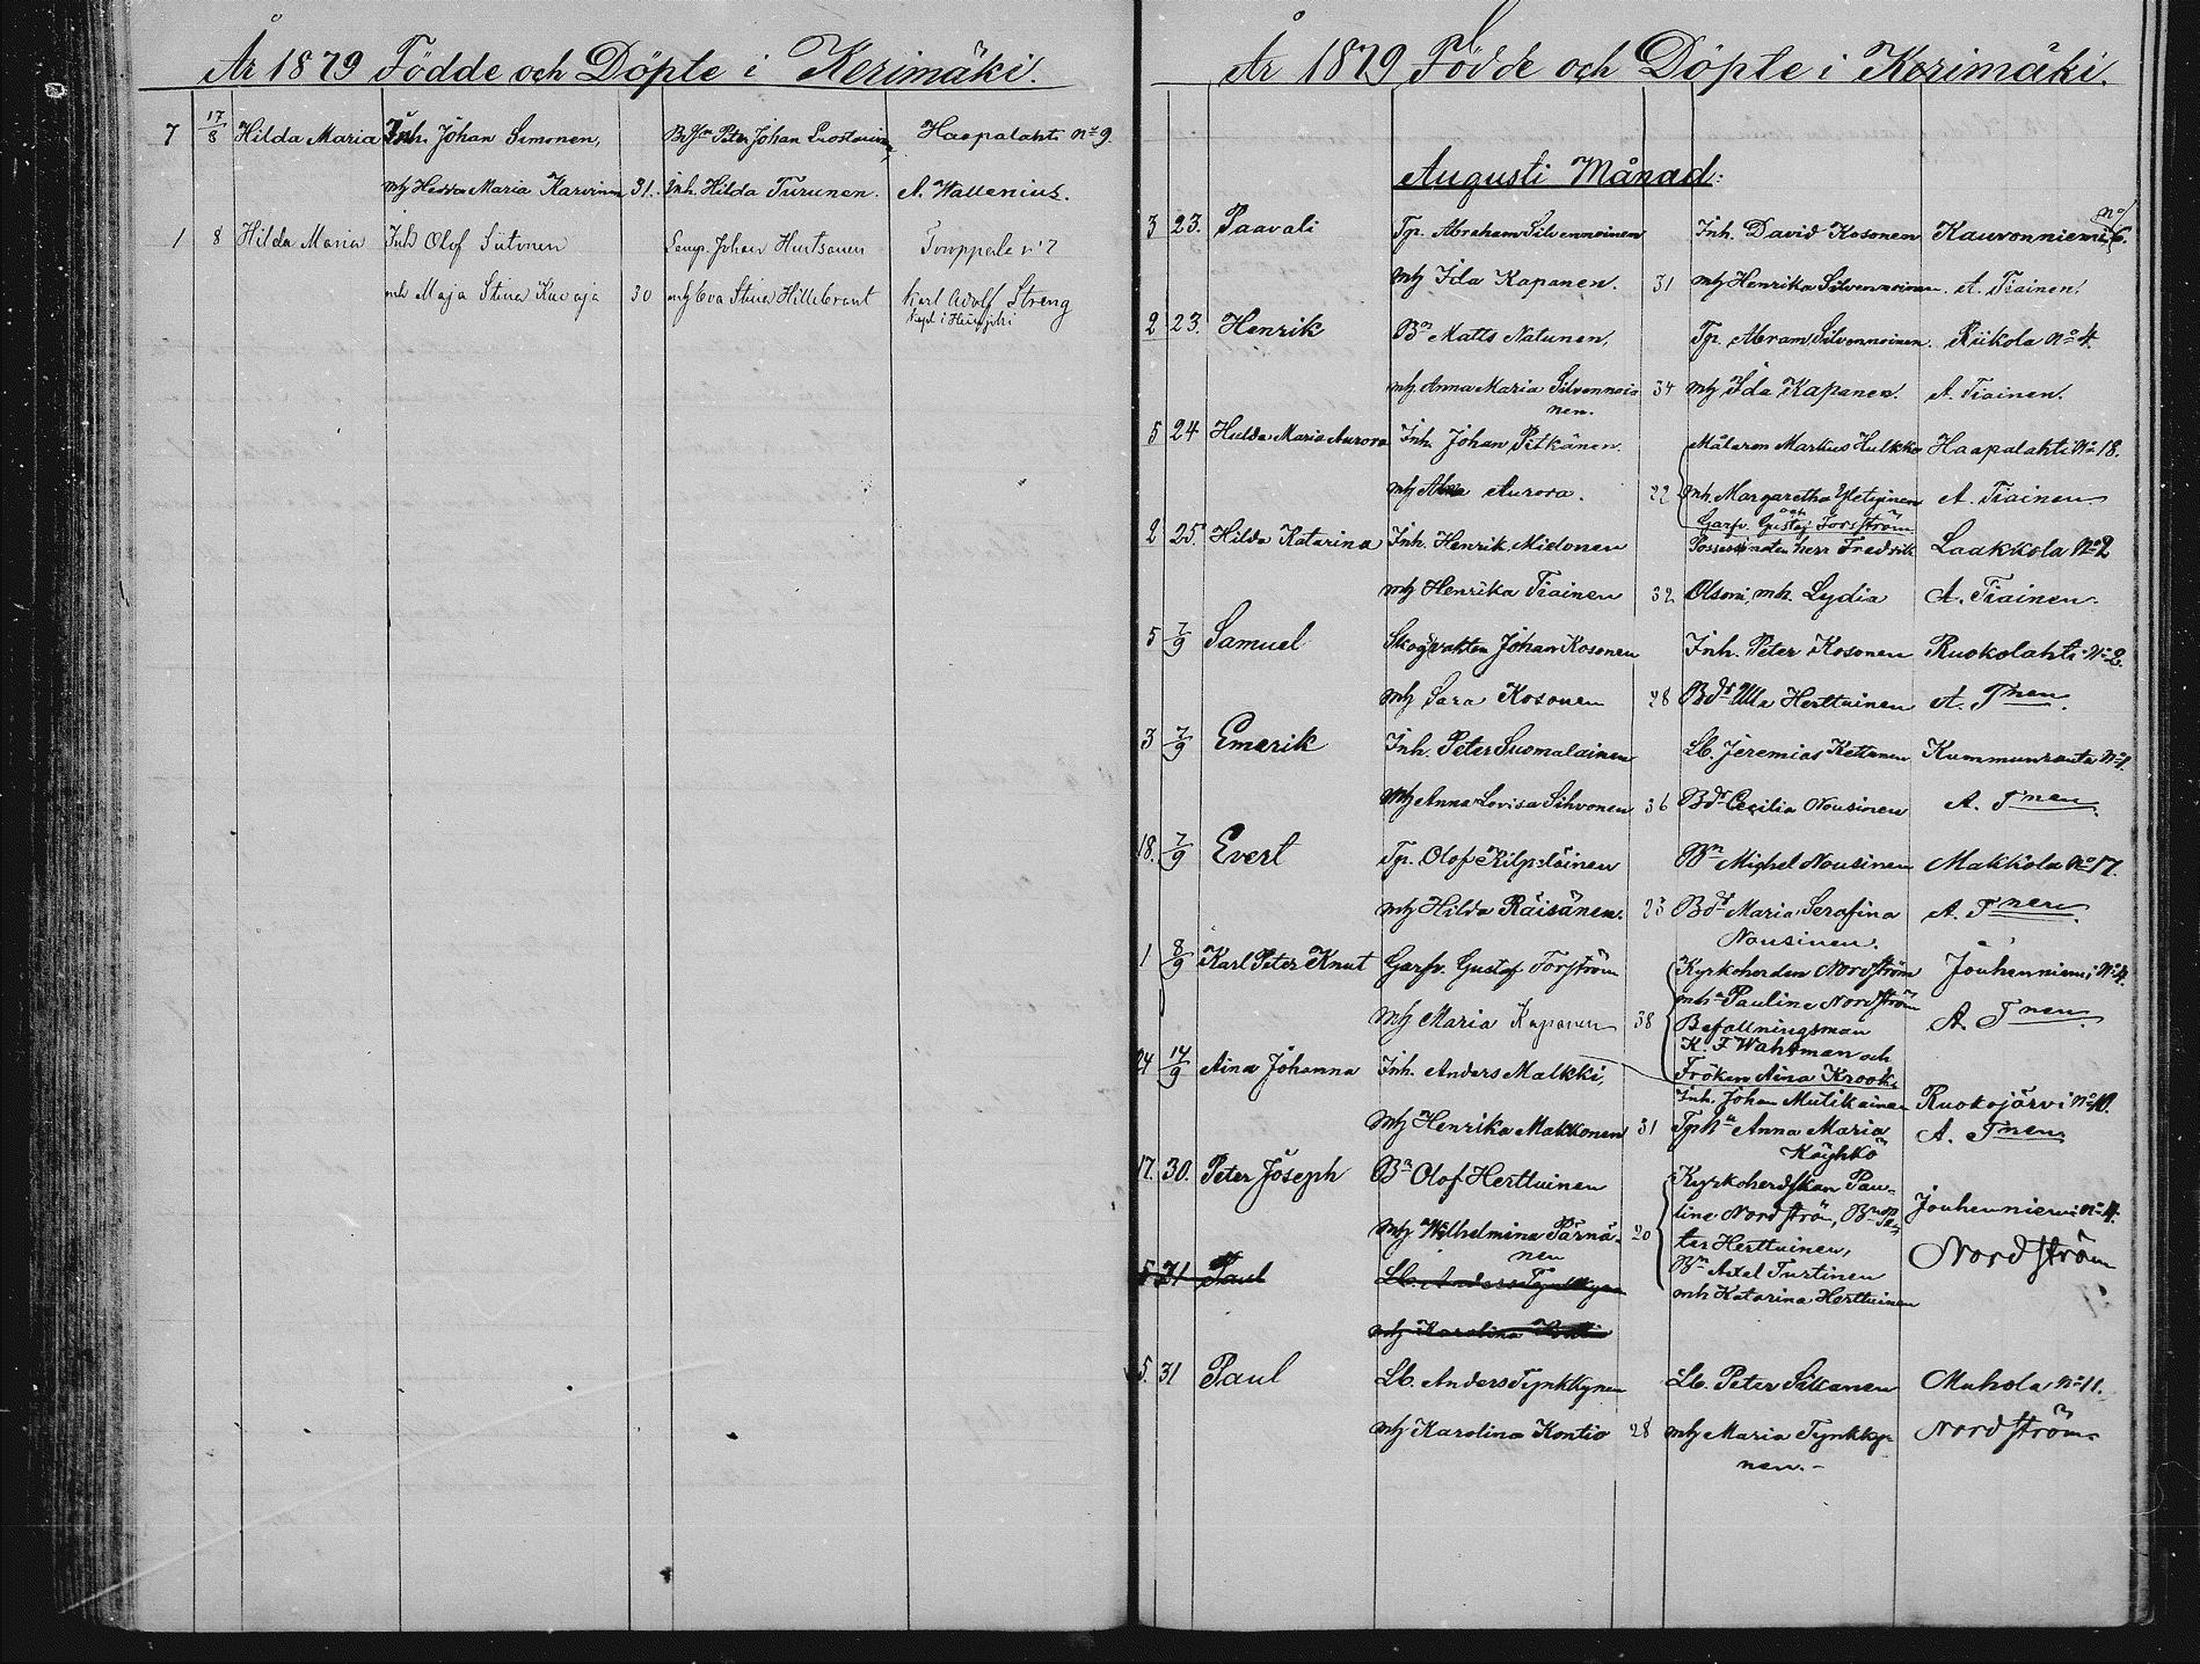 År 1879 Födde och Döpte i Kerimäki.
7 17/8 Hilda Maria Inh. Johan Simonen, Peter Johan Haapalahti No 9.
mh Hedda Maria Karvinen 31. Inh. Hilda Turunen. A. Wallenius.
1 8 Hilda Maria Inh Olof Siitonen Johan Hurtsonen
mh Maja Stina 30 mh Eva Stina Hillebrant Karl Adolf Streng
År 1879 Födde och Döpte i Kerimäki.
Augusti Månad:
3 23. Paavali Tp. Abraham Silvennoinen Inh. David Kosonen Kauvonniemi No 6.
mh Ida Kapanen. 31 mh Henrika Silvennoinen. A. Tiainen.
2 23. Henrik Bn Matts Natunen, Tp. Abram Silvennoinen. Riikola No 4.
mh Anna Maria Silvennoi 34 mh Ida Kapanen. A. Tiainen.
nen.
5 24 Hulda Maria Aurora Inh. Johan Pitkänen. Målaren Markus Hulkko Haapalahti No 18.
mh Aurora. 22 mh. Margaretha A. Tiainen
och
Garfv. Gustaf Forsström
2 25. Hilda Katarina Inh. Henrik Mielonen Possessionaten herr Fredrik Laakkola No 2
mh Henrika Tiainen 32 Olsoni, mh. Lydia A. Tiainen.
5 7/9 Samuel Skogvakten Johan Kosonen Inh. Peter Kosonen Ruokolahti No 2.
mh Sara Kosonen 28 Bdr Ulla Herttuinen A. Tnen.
3 7/9 Emerik Inh. Peter Suomalainen Lb. Jeremias Kettunen Kummunranta No 1.
mh Anna Lovisa Sihvonen 36 Bdr Cecilia Nousinen A. Tnen.
18. 7/9 Evert Tp. Olof Kilpeläinen Bn Michel Nousinen Makkola No 17.
mh Hilda Räisänen. 23 Bdr Maria Serafina A. Tnen.
Nousinen.
1 8/9 Karl Peter Knut Garfv. Gustaf Forström Kyrkoherden Nordström Jouhenniemi No 4.
mh Pauline Nordström
mh Maria Kapanen 38 Befallningsman A. Tnen.
K. F Wahlman och
24 14/9 Aina Johanna Inh. Anders Malkki, Fröken Aina Krook.
Inh. Johan Mutikainen Ruokojärvi No 10.
mh Henrika Makkonen 31 Tpha Anna Maria A. Tnen.
Käyhkö
17. 30. Peter Joseph Bn Olof Herttuinen Kyrkoherdskan Pau-
line Nordström, Jouhenniemi No 4.
mh Wilhelmina Pärnä- 20 ter Herttuinen,
nen Nordström
5 31 Paul Lb. Anders Tynkkynen Bn Axel Turtinen
mh Katarina Herttuinen
mh Karolina
5. 31 Paul Lb. Anders Tynkkynen Lb. Peter Silkanen Muhola No 11.
mh Karolina Kontio 28 mh Maria Tynkky- Nordström
nen.-